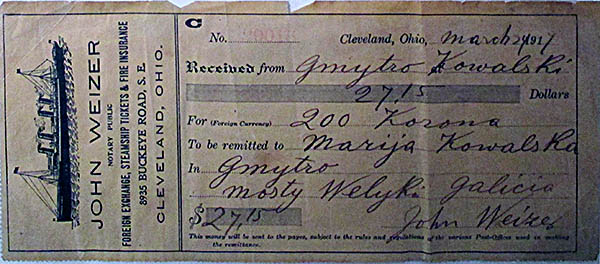 JOHN WEIZER
NOTARY PUBLIC
FOREIGN EXCHANGE, STEAMSHIP TICKETS & FIRE INSURANCE
8935 BUCKEYE ROAD, S. E.
CLEVELAND, OHIO.
C
No.
Cleveland, Ohio, March 24 1917
Received from Gmytro Kowalski
27.15 Dollars
For (Foreign Currency) 200 Korona
To be remitted to Marija Kowalska
In Gmytro
Mosty Welyki Galicia
$27.15 John Weizer
This money will be sent to the payee, subject to the rules and regulations of the various Post-Offices used in making
the remittance.